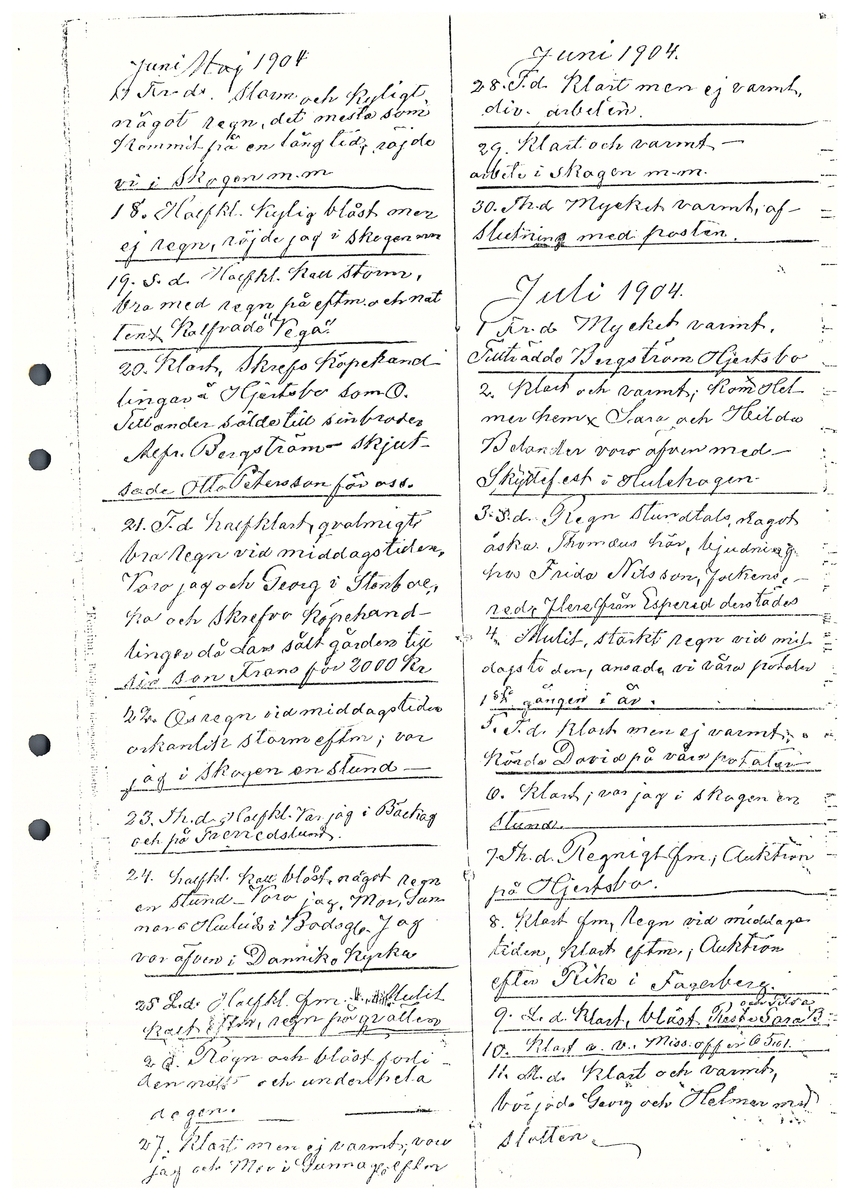 Juni Maj 1904
17 Fr.d. Storm och kyligt,
något regn, det mesta som
kommit på en lång tid, röjde
vi i skogen m.m
18. Halfkl. kylig blåst men
ej regn, röjde jag i skogen mm
19. S.d. Halfkl. kall storm,
bra med regn på eftm. och nat
ten x Kalfvade "Vega".
20. Klart, skrefs köpehand
lingar å Hjertsbo som O.
Tillander sålde till sin broder
Alfr. Bergström – skjut-
sade Otto Petersson för oss.
21. T.d. halfklart, qvalmigt
bra regn vid middagstiden,
Voro jag och Georg i Stenbac,
ka och skrefvo köpehand-
lingar då Lars sålt gården till
sin son Frans för 2000 Kr
22. Ösregn vid middagstiden
orkanlik storm eftm; var
jag i skogen en stund —
23. Th.d. Halfkl. Var jag i
och på
24. halfkl. kall blåst, något regn
en stund – Voro jag, Mor,
i Jag
var äfven i Dannike kyrka
25 L.d. Halfkl. fm. Mulit
kallt eftm, regn på qvällen
26. Regn och blåst förli-
den natt och under hela
dagen.
27. Klart men ej varmt, voro
jag och Mor i efter
Juni 1904.
28. T.d. Klart men ej varmt,
div. arbeten.
29. Klart och varmt —
arbete i skogen m.m.
30. Th.d Mycket varmt, af-
slutning med posten.
Juli 1904.
1 Fr.d Mycket varmt.
Tillträdde Bergström Hjertsbo
2. Klart och varmt; kom Hel
mer hem x Sara och Hilda
Belander voro äfven med –
Skyttefest i Hulehagen
3. S.d. Regn stundtals, något
åska. Thomæus här, bjudning
hos Frida Nilsson,
red, flere från Espered derstädes
4. Mulit, starkt regn vid mid
dagstiden, ansade vi våra potater
1sta gången i år.
5. T.d. Klart men ej varmt;
körde David på våra potater
6. Klart; var jag i skogen en
stund.
7 Th.d. Regnigt fm.; Auktion
på Hjertsbo.
8. Klart fm, regn vid middags
tiden, klart eftm.; Auktion
efter Rike i Fagerberg.
9. L.d. Klart, blåst
10. Klart o. v. Miss. offer
11. M.d. Klart och varmt,
började Georg och Helmer med
slotten.